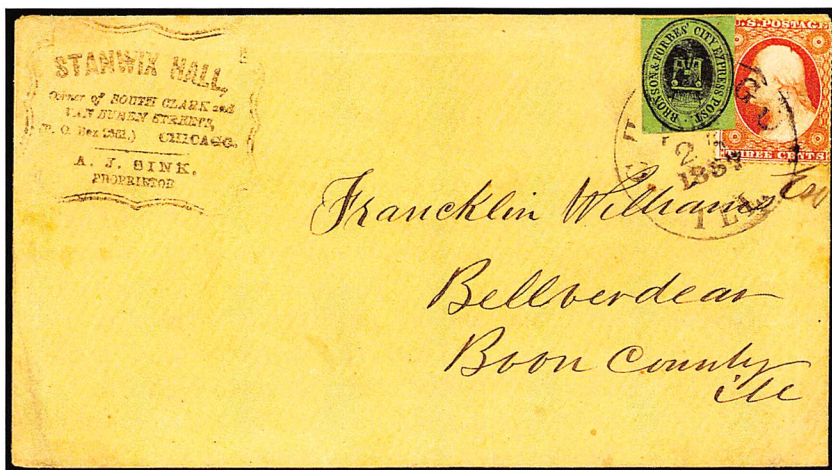 STANWIX HALL,
Corner of SOUTH CLARK and
VAN BUREN STREETS,
(P. O. Box 2361.) CHICAGO.
A. J. SINK,
PROPRIETOR
BRONSON & FORBES' CITY EXPRESS POST
U.S. POSTAGE
THREE CENTS
CHICAGO
ILL
Francklin Williams
Bellverdear
Boon County
ill